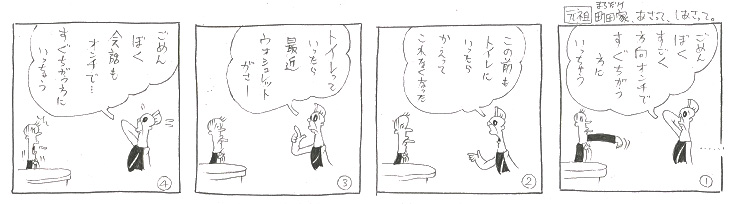 まちだけ
元祖 町田家、あさって、しあさって。
ごめん
ぼく
すごく
方向オンチで
すぐちがう
方に
いっちゃう
①
この前も
トイレに
いったら
かえって
これなくなった
②
トイレって
いったら
最近
ウォシュレット
がさー
③
ごめん
ぼく
会話も
オンチで…
すぐちがう方に
いっちゃう
④